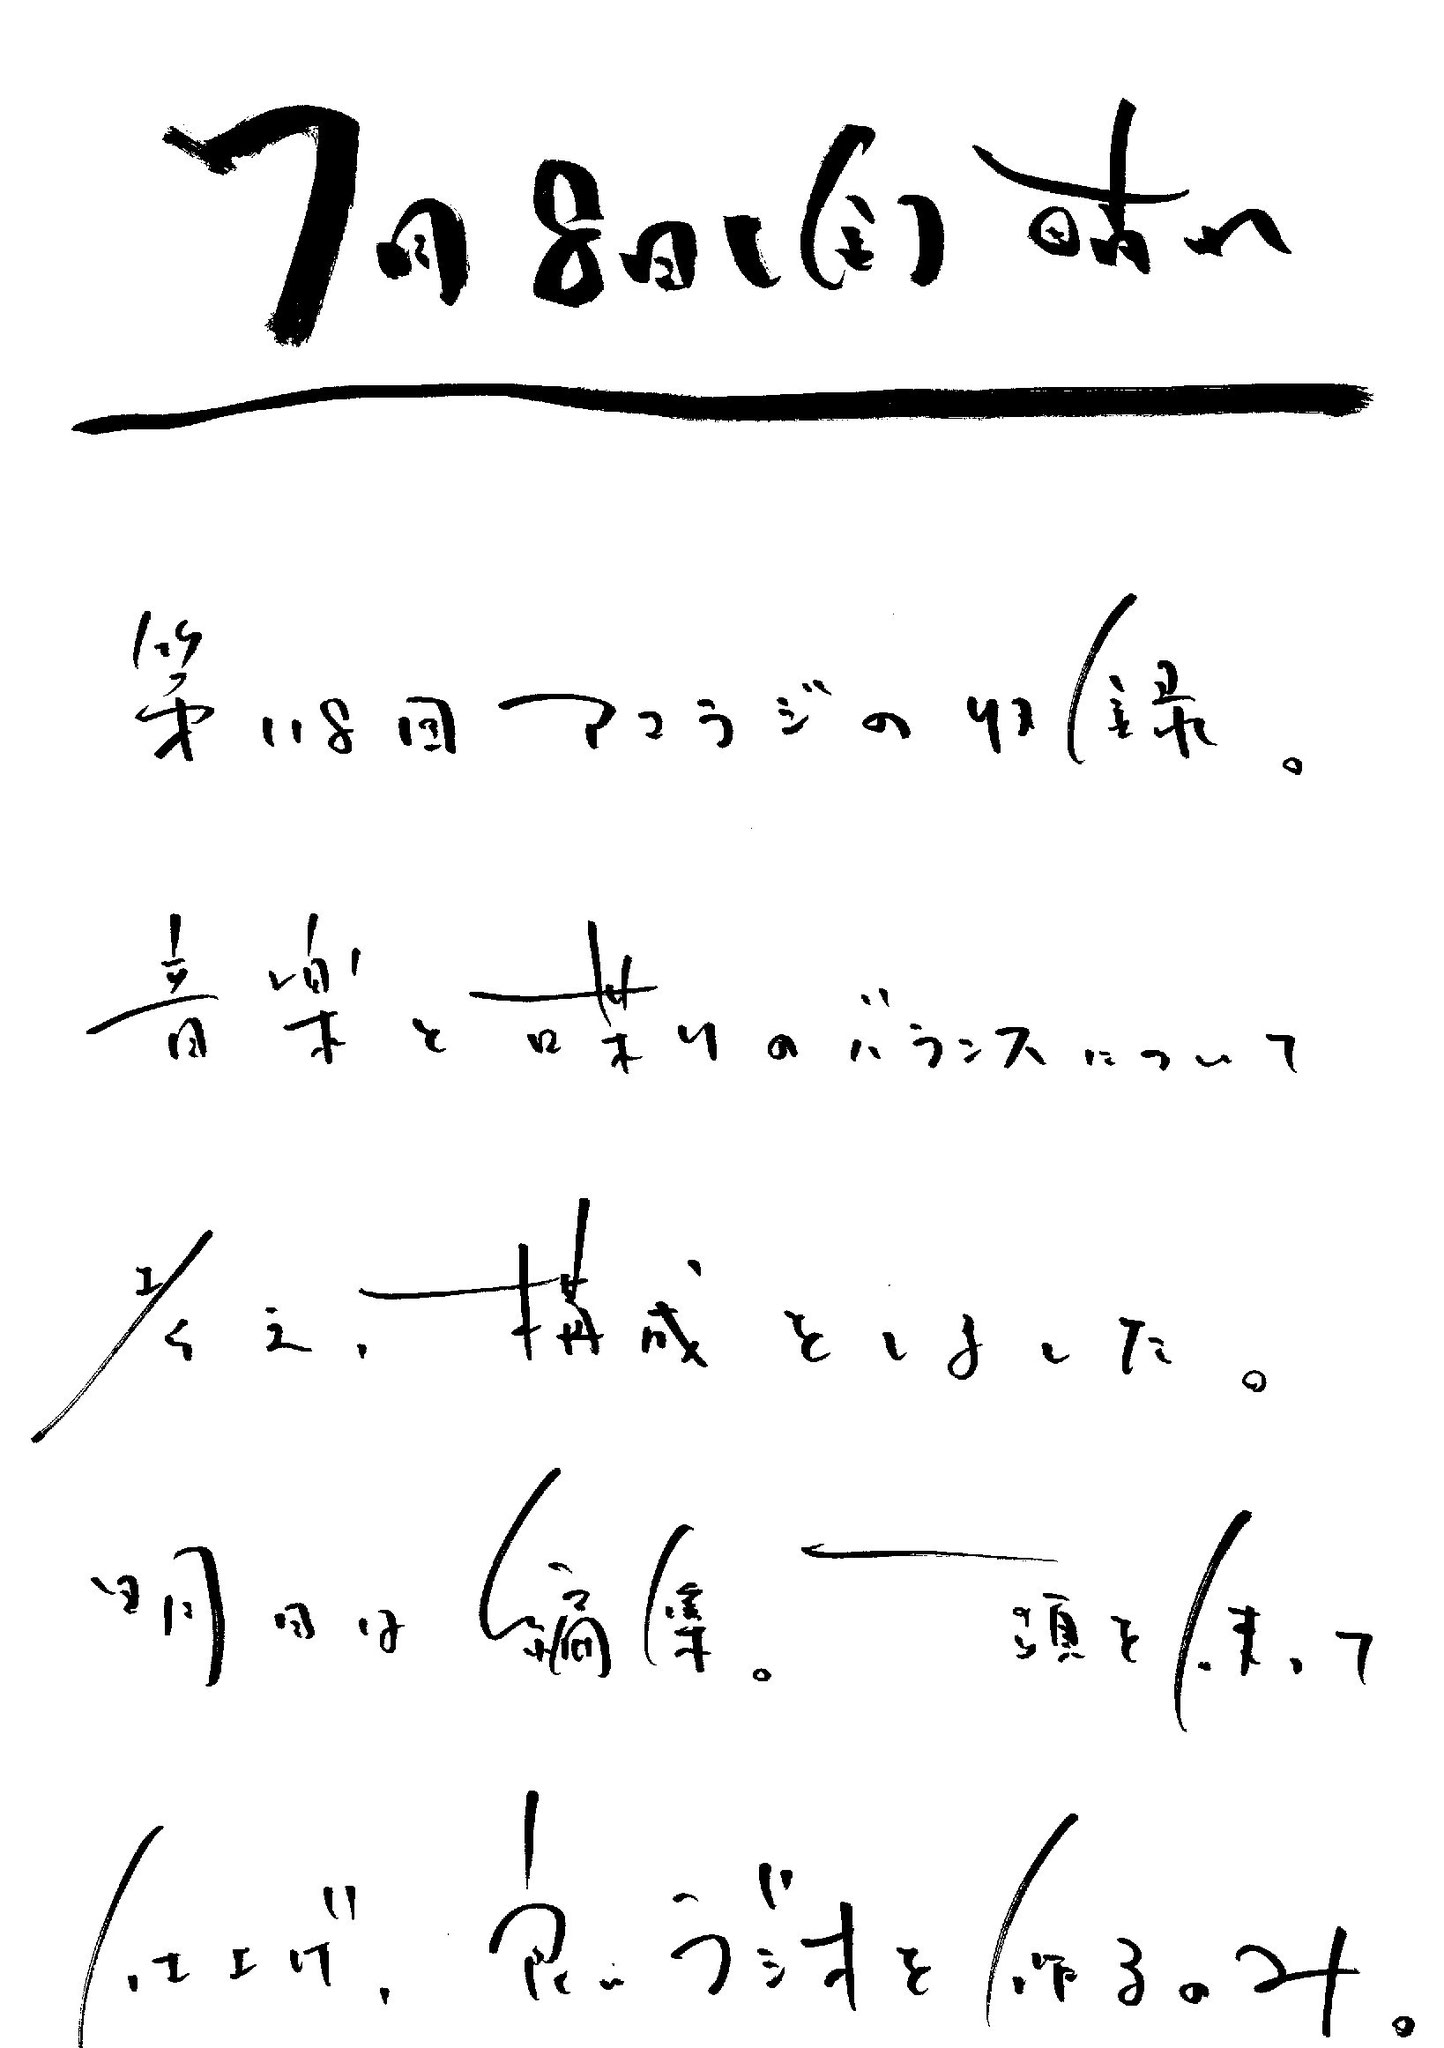 7月8日(金) 晴れ
第118回アコラジの収録。
音楽と喋りのバランスについて
考え、構成をしました。
明日は編集。 頭を使って
仕上げ、良いラジオを作るのみ。